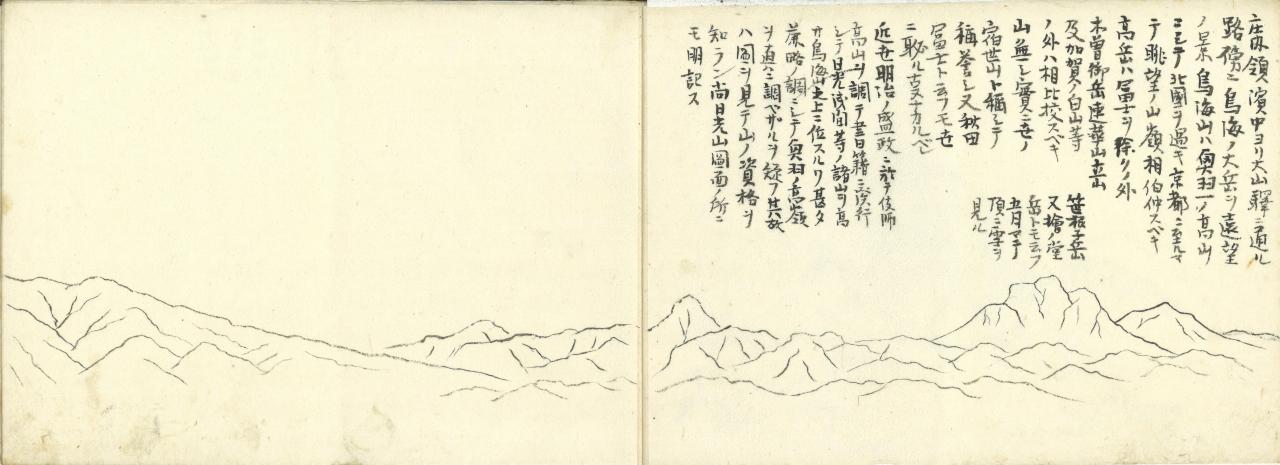 庄内領濱中ヨリ大山驛ニ通ル
路傍ニ鳥海ノ大岳ヲ遠望
ノ景鳥海山ハ奥羽一ノ高山
ニシテ北國ヲ過キ京都ニ至ルマ
テ眺望ノ山嶺相伯仲スベキ
高岳ハ冨士ヲ除クノ外
木曽御岳連華山立山
及加賀ノ白山等
ノ外ハ相比挍スベキ
山無シ實ニ世ノ
宿世山ト稱シテ
稱誉シ又秋田
冨士ト云フモ世
ニ恥ル
近世明治ノ盛政ニ於テ
高山ヲ調テ書籍ニ
シテ日光浅間等ノ諸山ヲ高
サ鳥海之上ニ位スルハ甚タ
ノ調ニシテ奥羽ノ高嶺
ヲ真ニ調ベザルヲ
ハ圖ヲ見テ山ノ資格ヲ
知ラン尚日光山圖面ノ所ニ
モ明記ス
岳
又檜ノ堂
岳トモ云フ
五月マテ
頂ニ雪ヲ
見ル